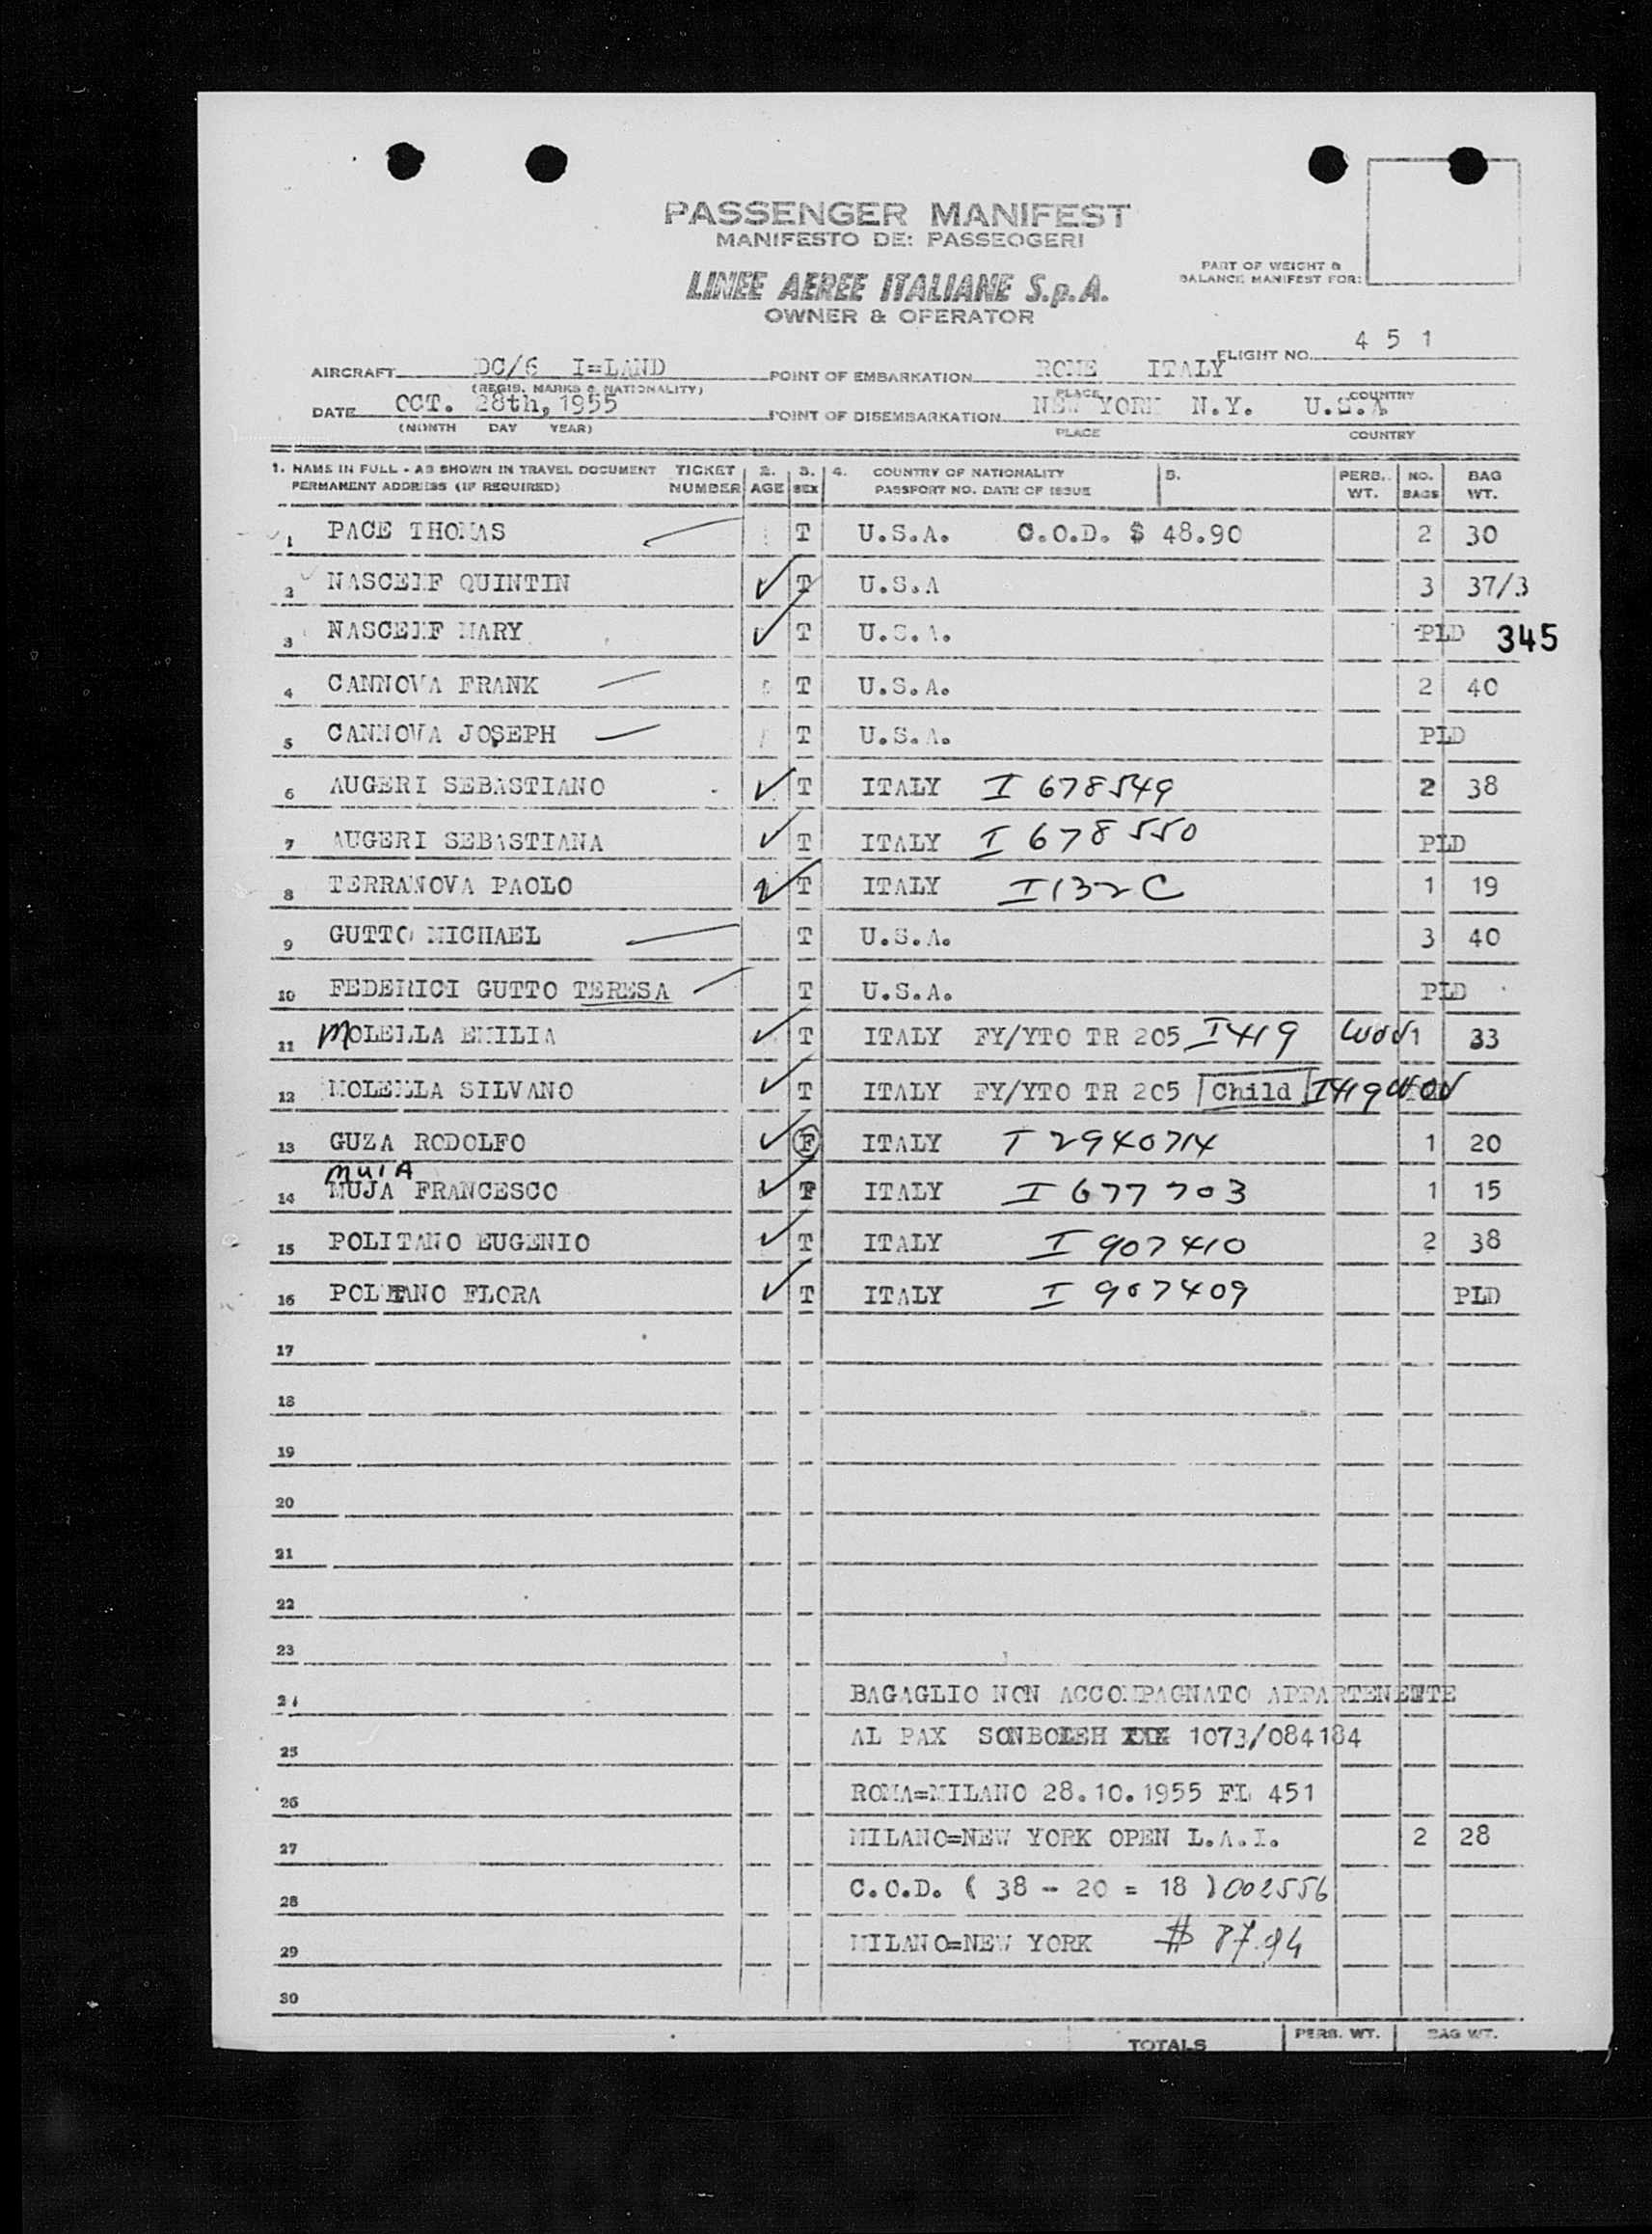 PASSENGER MANIFEST
MANIFESTO DE: PASSEOGERI
LINEE AEREE ITALIANE S.p.A.
OWNER & OPERATOR
PART OF WEIGHT &
BALANCE MANIFEST FOR:
FLIGHT NO. 4 5 1
AIRCRAFT DC/6 I=LAND POINT OF EMBARKATION ROME ITALY
(REGIS. MARKS & NATIONALITY) PLACE COUNTRY
DATE OCT. 28th, 1955 POINT OF DISEMBARKATION NEW YORK N.Y. U.S.A
(MONTH DAY YEAR) PLACE COUNTRY
1. NAME IN FULL - AS SHOWN IN TRAVEL DOCUMENT TICKET 2. 3. 4. COUNTRY OF NATIONALITY 5. PERS. NO. BAG
PERMANENT ADDRESS (IF REQUIRED) NUMBER AGE SEX PASSPORT NO. DATE OF ISSUE WT. BAGS WT.
1 PACE THOMAS T U.S.A. C.O.D. $ 48.90 2 30
2 NASCEIF QUINTIN T U.S.A 3 37/3
3 NASCEIF MARY T U.S.A. PLD 345
4 CANNOVA FRANK T U.S.A. 2 40
5 CANNOVA JOSEPH T U.S.A. PLD
6 AUGERI SEBASTIANO T ITALY I 678549 2 38
7 AUGERI SEBASTIANA T ITALY I 678550 PLD
8 TERRANOVA PAOLO T ITALY I132C 1 19
9 GUTTO MICHAEL T U.S.A. 3 40
10 FEDERICI GUTTO TERESA T U.S.A. PLD
11 MOLELLA EMILIA T ITALY FY/YTO TR 205 I419 1 33
12 MOLELLA SILVANO T ITALY FY/YTO TR 205 Child I419
13 GUZA RODOLFO F ITALY I 2940714 1 20
MUIA
14 MUJA FRANCESCO T ITALY I 677703 1 15
15 POLITANO EUGENIO T ITALY I 907410 2 38
16 POLITANO FLORA T ITALY I 907409 PLD
17
18
19
20
21
22
23
24 BAGAGLIO NON ACCOMPAGNATO APPARTENENTE
25 AL PAX SONBOLEH 1073/084184
26 ROMA=MILANO 28.10.1955 FL 451
27 MILANO=NEW YORK OPEN L.A.I. 2 28
28 C.O.D. ( 38 - 20 = 18 ) 002556
29 MILANO=NEW YORK $ 87.94
30
TOTALS PERS. WT. BAG WT.